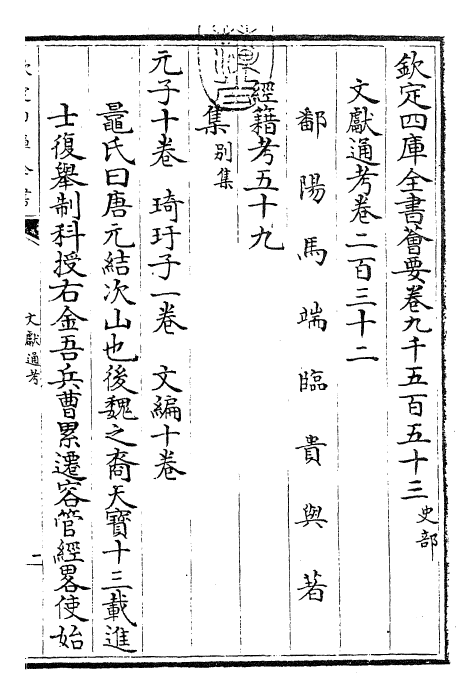 欽定四庫全書薈要卷九千五百五十三史部
文獻通考卷二百三十二
鄱陽馬端臨貴與著
經籍考五十九
集別集
元子十卷　琦玗子一卷　文編十卷
鼂氏曰唐元結次山也後魏之裔天寶十三載進
士復舉制科授右金吾兵曹累遷容管經畧使始
文獻通考